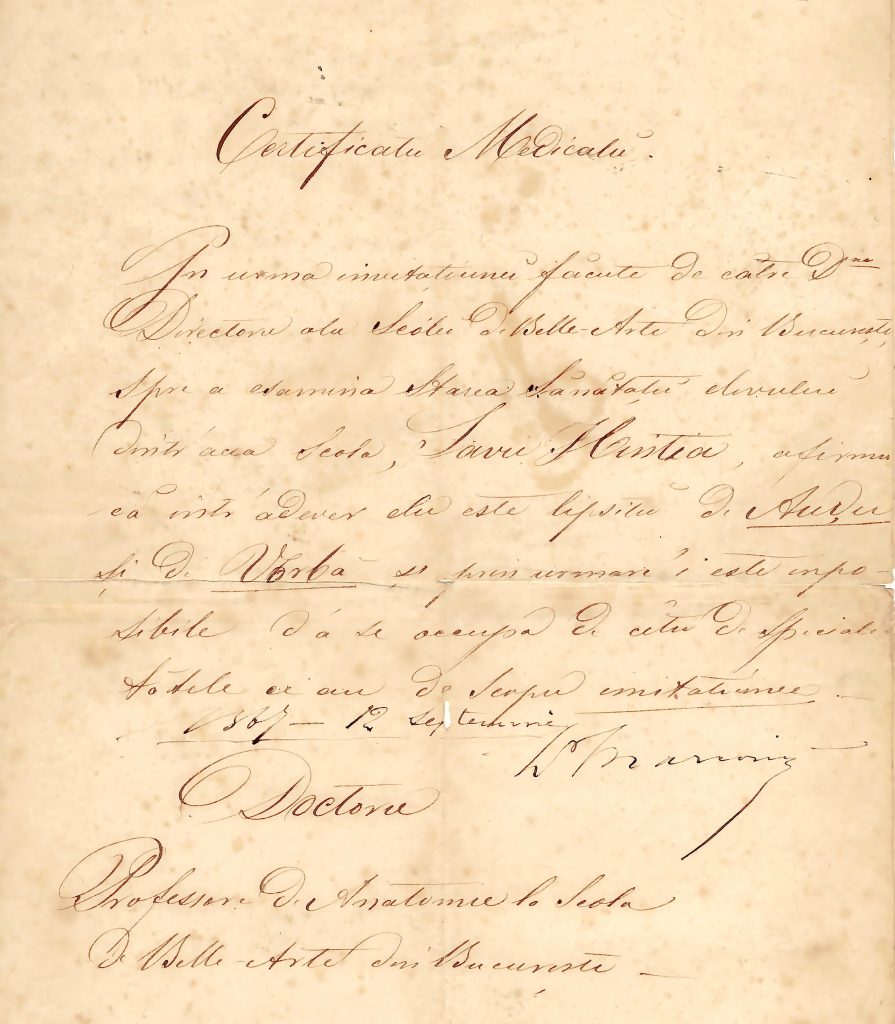 Certificatu Medicalŭ.
In urma invitaţiunei făcute de către Dnu
Directore alu Scólei de Belle-Arte din Bucuresti,
spre a esamina starea Sănătăţei elevului
dintr'acea Scola, Savu Hintia, afirmu
că intr'adever elu este lipsitu de Auḑu
şi de Vorbă şi prin urmare 'i este inpo-
sibile d'a se occupa de câtu de speciali
tăţile ce au de scopu imitatiunee.
1867 — 12 Septemvrie
Dr
Doctore
Professore de Anatomie la Scola
de Belle-Arte din Bucuresti —